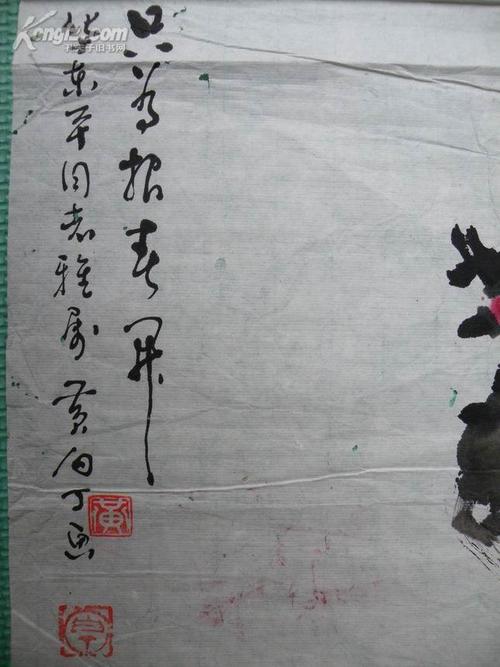 Kongfz.com
孔夫子旧书网
只为报春开
东平同志雅属 黄向丁画
黄